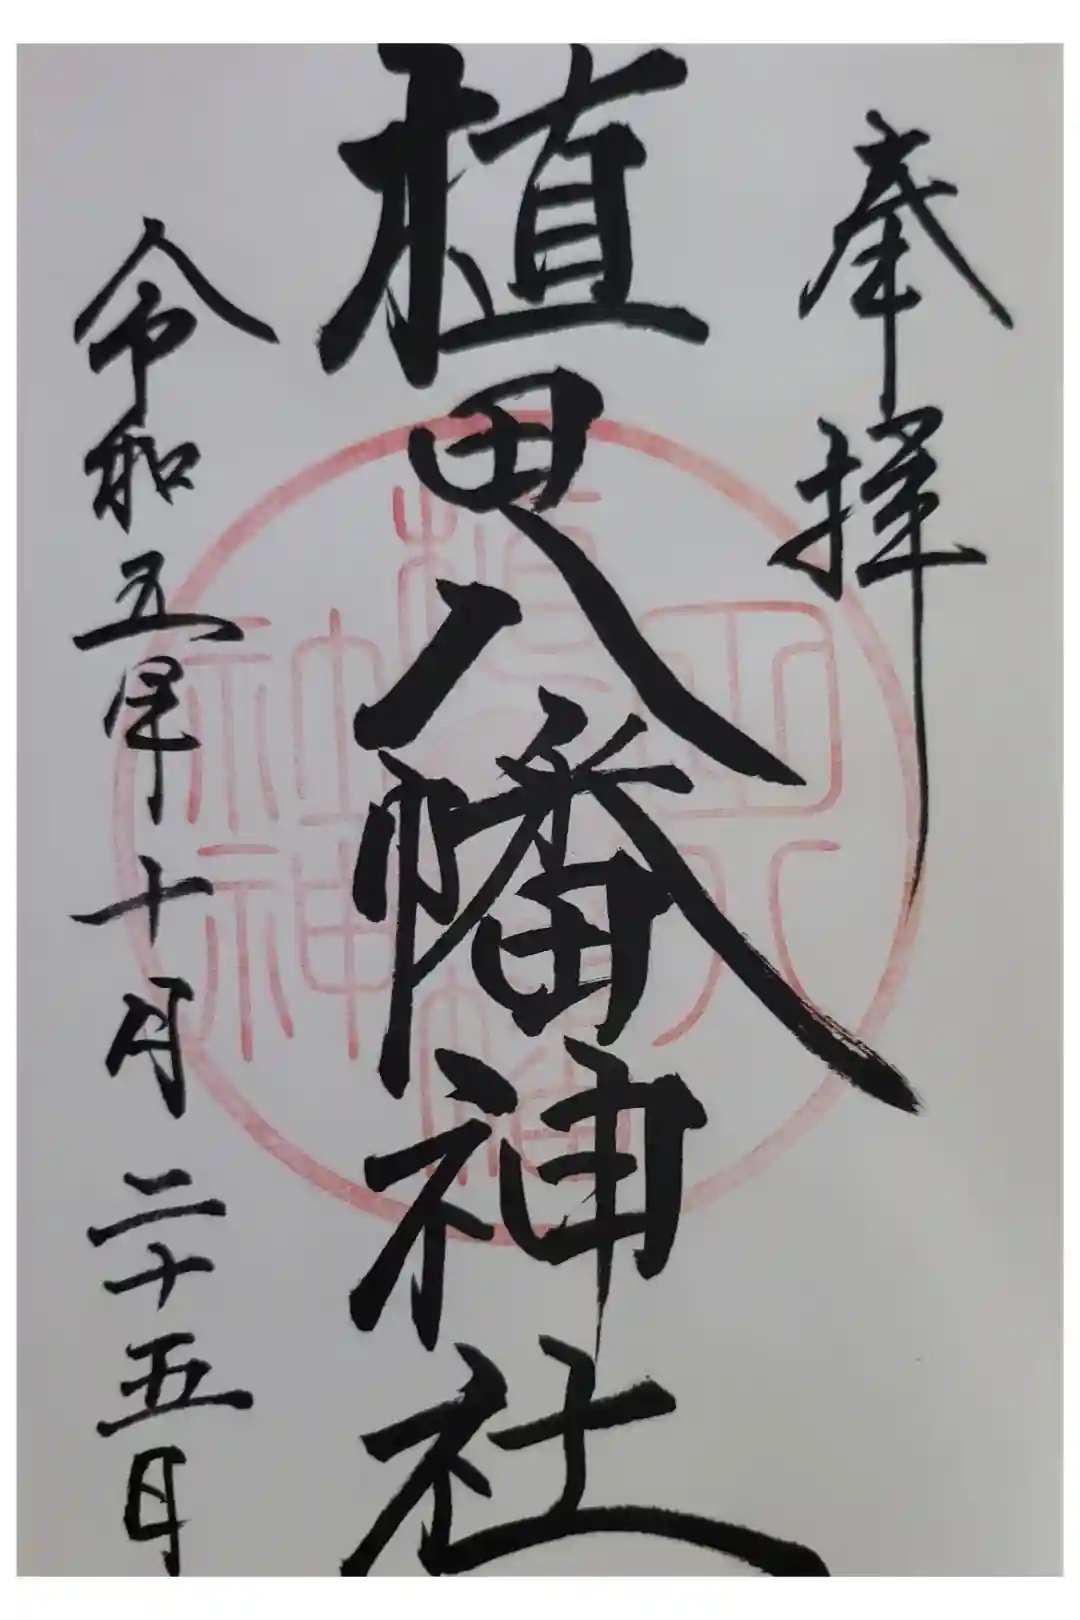 奉拝
植田八幡神社
令和五年十月二十五日
植田八幡神社